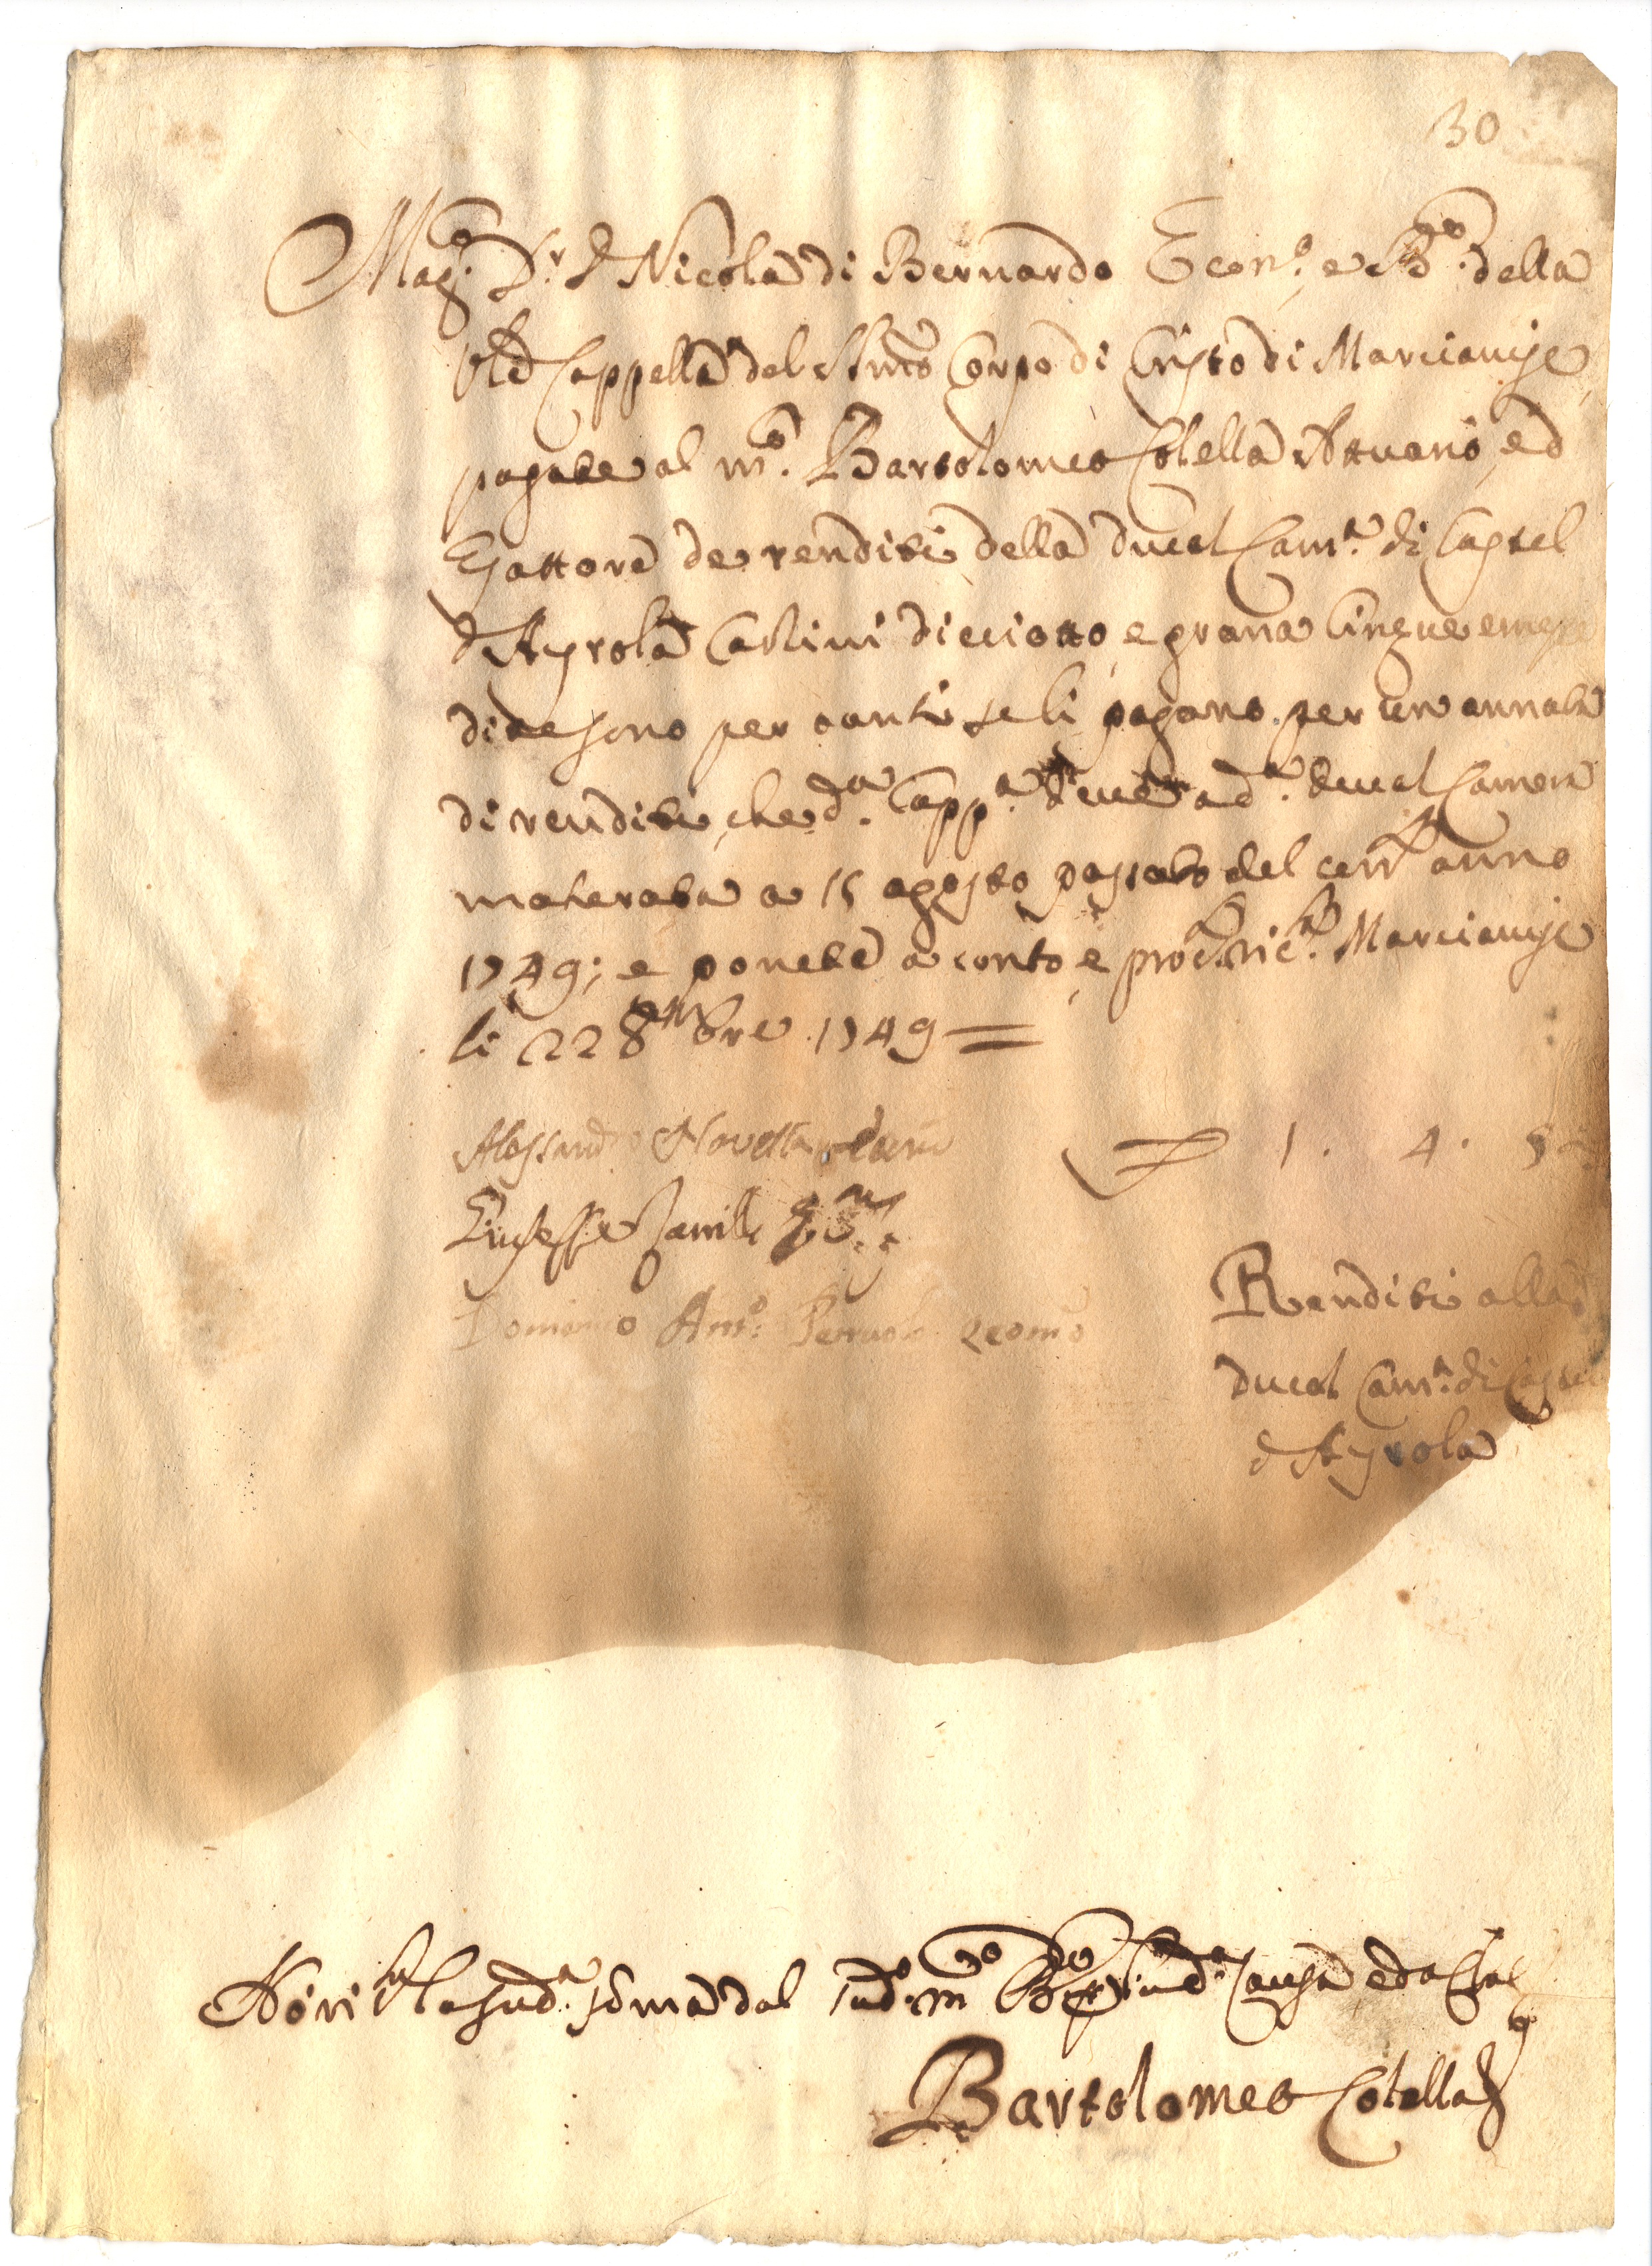 30
Mag.co Sr. D. Nicola di Bernardo Econ.o e della
Ven.le Cappella del SS.mo Corpo di Cristo di Marcianise
pagate al m.co Bartolomeo Cotella Attuario, ed
Esattore de renditi della Ducal Cam.a di Castel
d'Ayrola Carlini dieciotto, e grana Cinque e mezo
di te sono per tanti se li pagano per un annata
di renditi, che d.a Capp.a deve a d.a Ducal Camera
maturata a 15 agosto passato del corr.e anno
1749; e ponete a conto, e Marcianise
li 22 8bre 1749 =
Alessandro Novella
Giuseppe
Domenico Ant.o econ.o
D 1. 4. 5
Renditi alla
Ducal Cam.a di Castel
d'Ayrola
Hò ric.to la sud.a soma dal sud.o m.co B.o p la sud.a Causa ed a
Bartolomeo Cotella